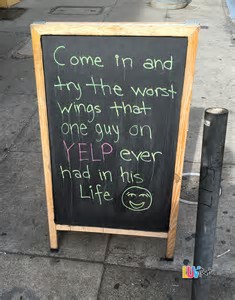 Come in and
try the worst
wings that
one guy on
YELP ever
had in his
Life